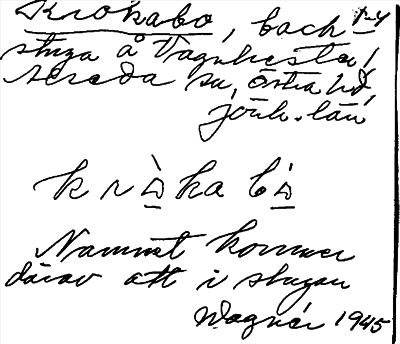 Krokabo, back-
stuga å Vagnhester,
Sereda sn, Östra hd,
Jönk. län
krò̲ka bò̲
Namnet kommer
därav att i stugan
Wagnér 1945